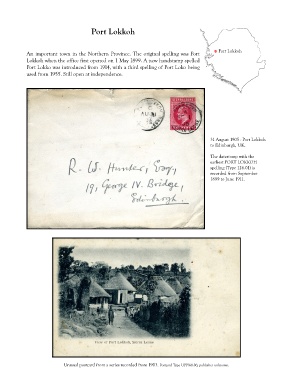 Port Lokkoh
Port Lokkoh
An important town in the Northern Province. The original spelling was Port
Lokkoh when the office first opened on 1 May 1899. A new handstamp spelled
Port Lokko was introduced from 1914, with a third spelling of Port Loko being
used from 1955. Still open at independence.
31 August 1905. Port Lokkoh
to Edinburgh, UK.
The datestamp with the
earliest PORT LOKKOH
spelling (Type
recorded from September
1899 to June 1911.
R. W. Hunter, Esq.,
19, George IV. Bridge,
Edinburgh.
View of Port Lokkoh, Sierra Leone
Unused postcard from a series recorded from 1903.